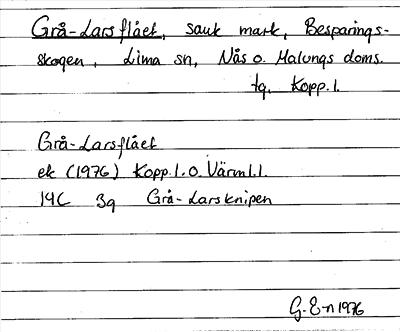 Grå-Larsflået, sank mark, Besparings-
skogen, Lima sn, Nås o. Malungs doms.
tg. Kopp. l.
Grå-Larsflået
ek (1976) Kopp. l. o. Värml. l.
14C 3g Grå-Larsknipen
G. E-n 1976